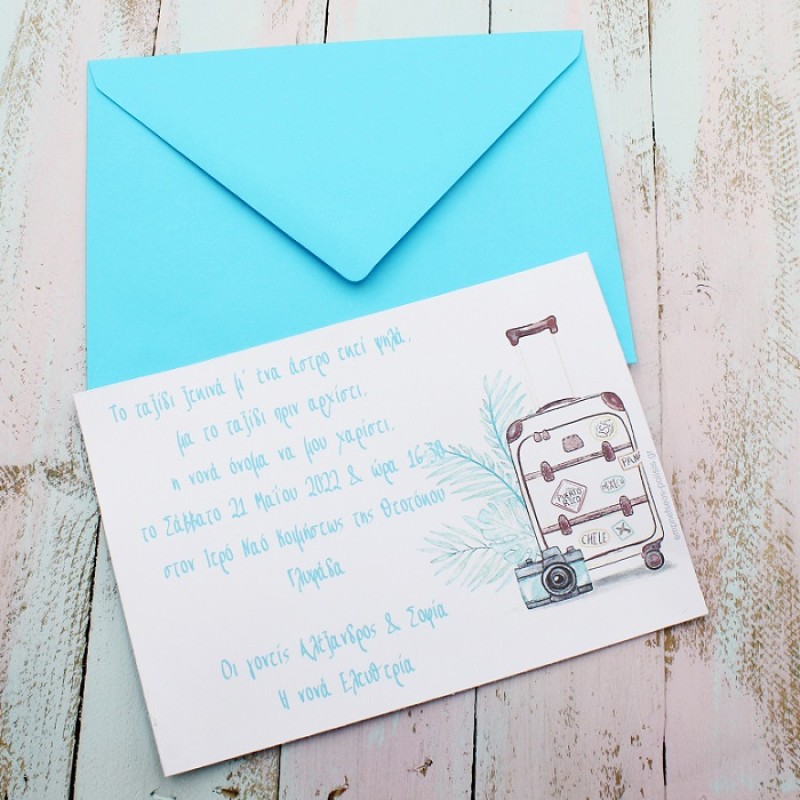 Το ταξίδι ξεκινά μ' ένα άστρο εκεί ψηλά,
μα το ταξίδι πριν αρχίσει,
η νονά όνομα να μου χαρίσει,
το Σάββατο 21 Μαΐου 2022 & ώρα 16:30
στον Ιερό Ναό Κοιμήσεως της Θεοτόκου
Γλυφάδα
Οι γονείς Αλέξανδρος & Σοφία
Η νονά Ελευθερία
PUERTO RICO
MEXICO
CHILE